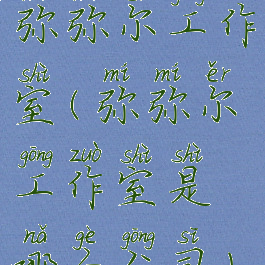 弥弥尔工作
shì mí mí ěr
室(弥弥尔
gōng zuò shì shì
工作室是
nǎ gè gōng sī
哪个公司)